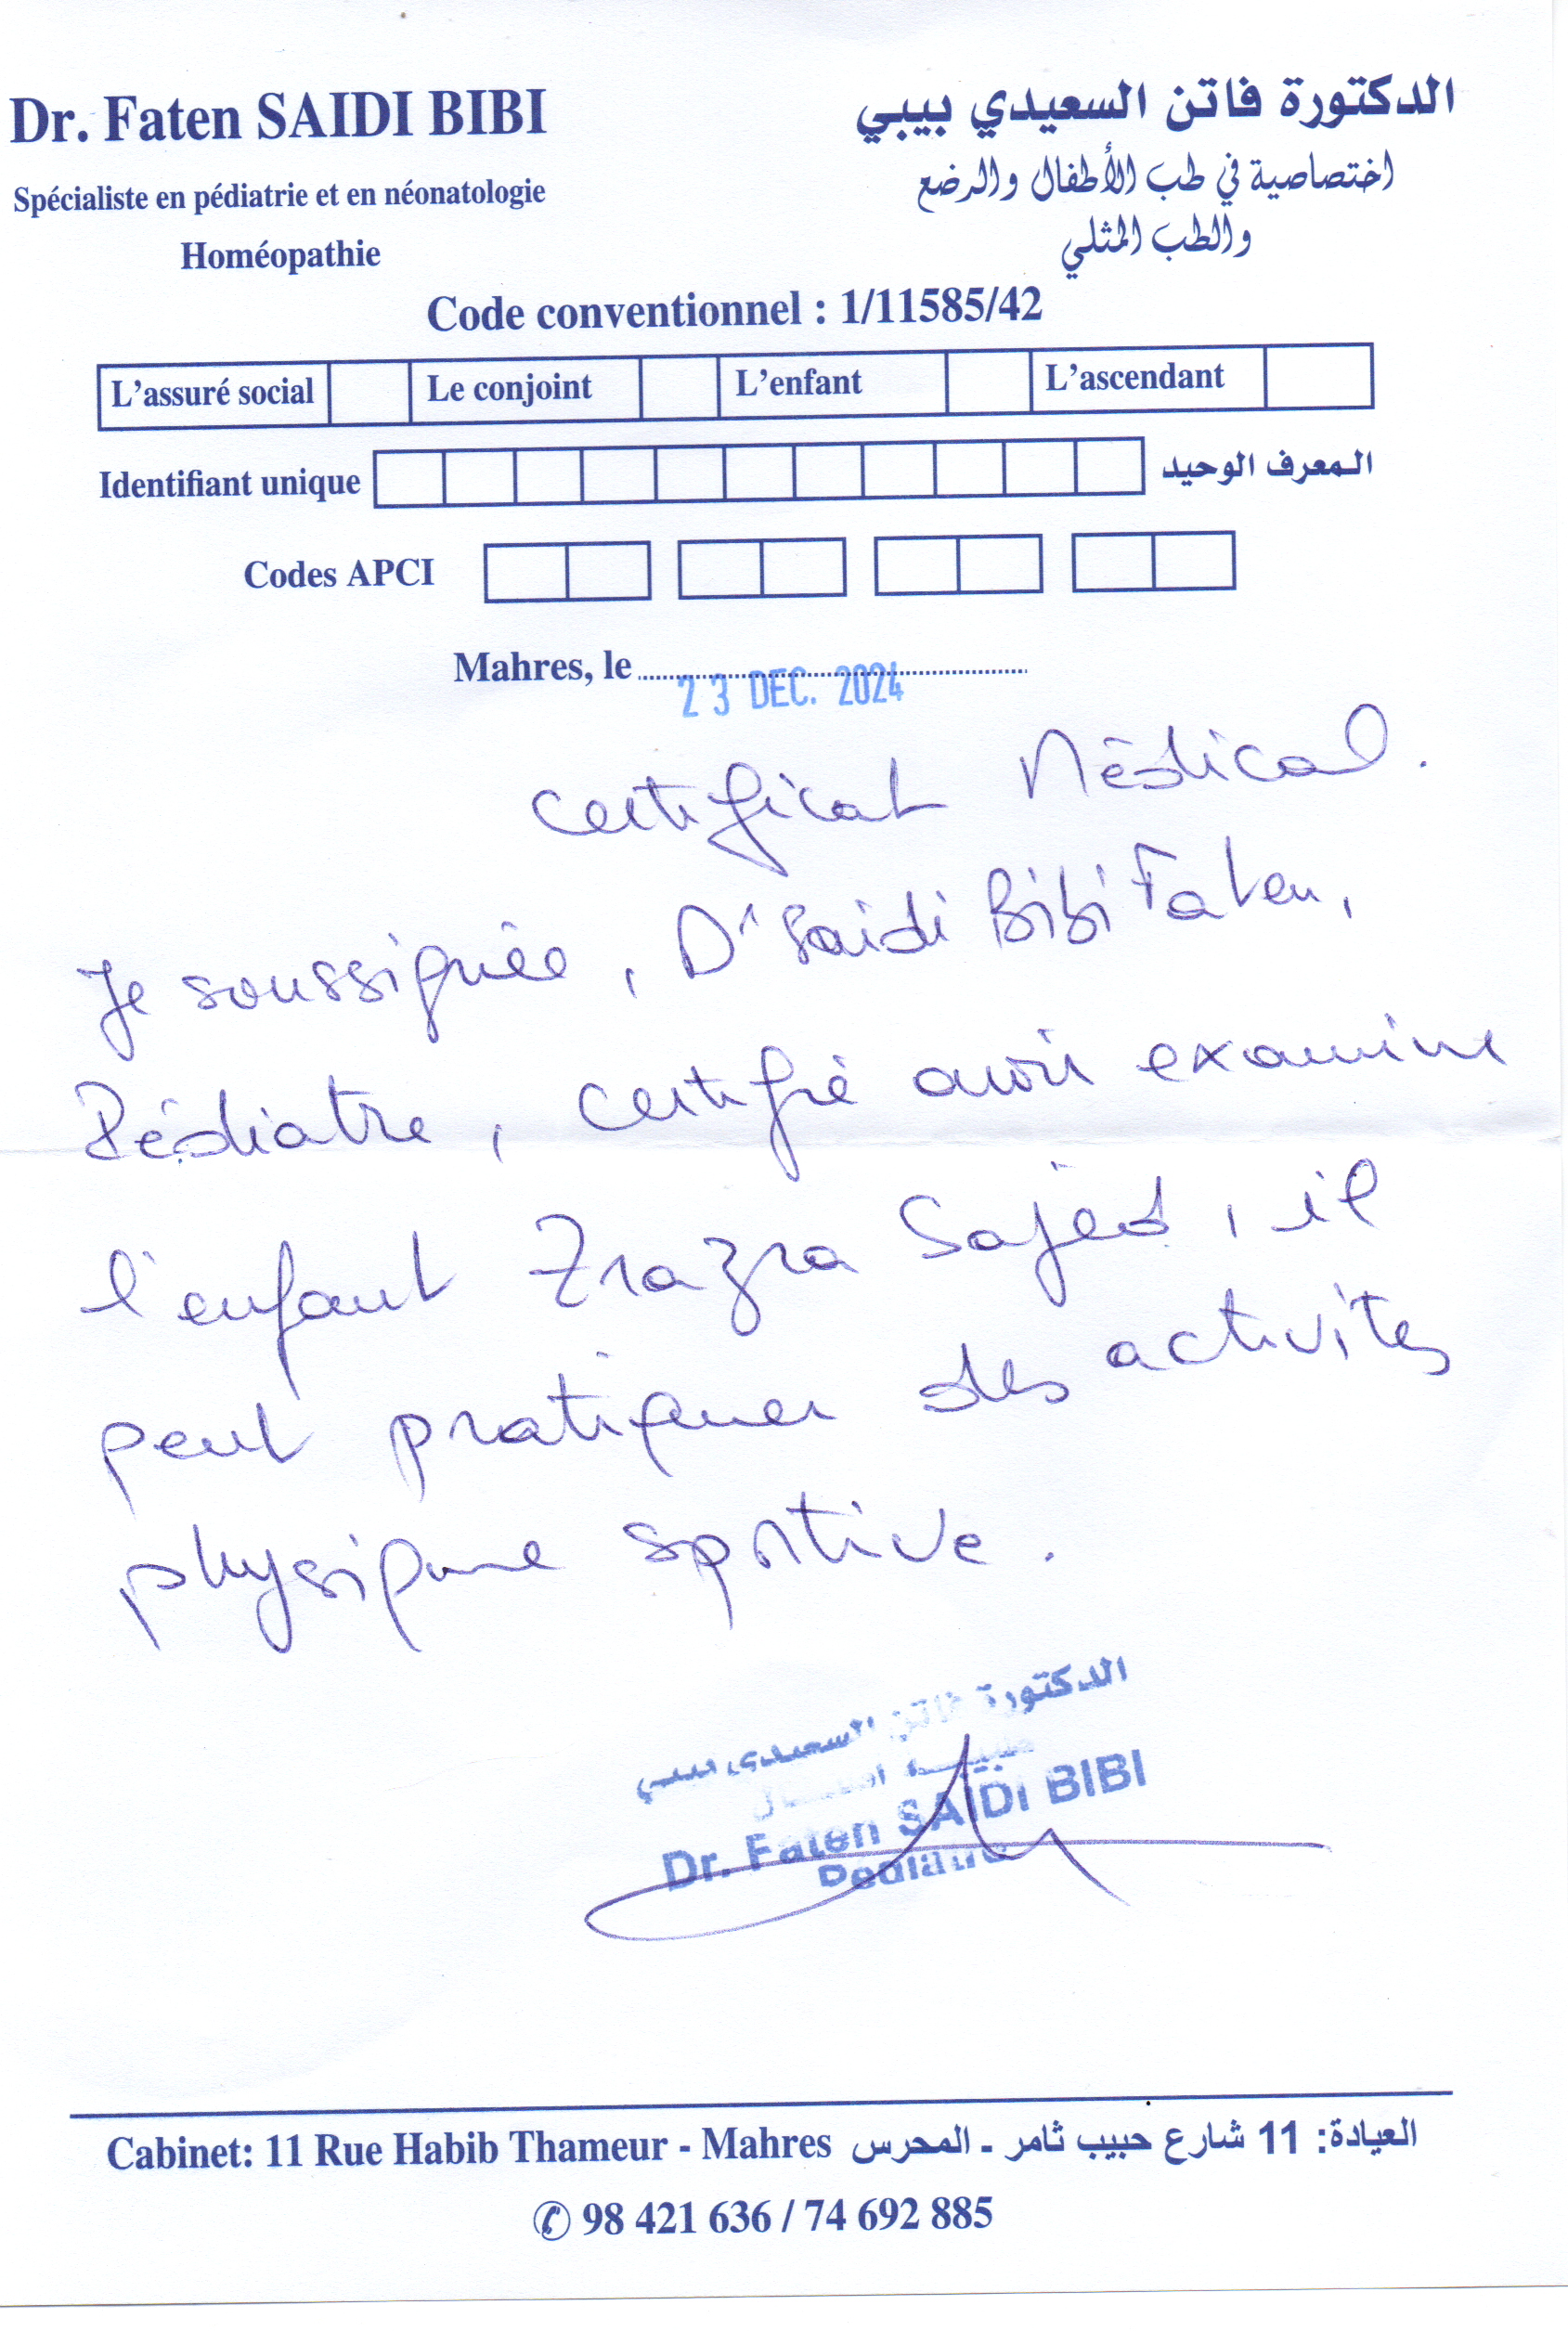 Dr. Faten SAIDI BIBI
Spécialiste en pédiatrie et en néonatologie
Homéopathie
الدكتورة فاتن السعيدي بيبي
اختصاصية في طب الأطفال والرضع
والطب المثلي
Code conventionnel : 1/11585/42
L'assuré social Le conjoint L'enfant L'ascendant
Identifiant unique المعرف الوحيد
Codes APCI
Mahres, le
23 DEC. 2024
Certificat Médical.
Je soussignée, Dr Saidi Bibi Faten,
Pédiatre, certifié avoir examine
l'enfant Zrazra Sajed, il
peut pratiquer des activités
physique sportive.
الدكتورة فاتن السعيدي بيبي
طبيبة أطفال
Dr. Faten SAIDI BIBI
Pediatre
Cabinet: 11 Rue Habib Thameur - Mahres العيادة: 11 شارع حبيب ثامر - المحرس
✆ 98 421 636 / 74 692 885